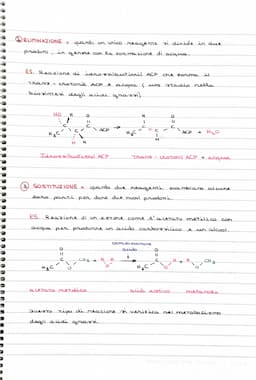 ② ELIMINAZIONE, quando un unico reagente si divide in due
prodotti, in genere con la formazione di acqua.
ES. Reazione di idrossibutirril ACP che forma il
trans-crotonil ACP e acqua (uno stadio nella
biosintesi degli acidi grassi)
HO H O H O
H₃C C C C ACP → H₃C C C C ACP + H₂O
H H H
Idrossibutirril ACP trans-crotonil ACP + acqua
③ SOSTITUZIONE, quando due reagenti scambiano alcune
loro parti per dare due nuovi prodotti.
ES. Reazione di un estere come l'acetato metilico con
acqua per produrre un acido carbossilico e un alcol.
O O
H₃C C O CH₃ + H O H → H₃C C O H + H O CH₃
acetato metilico acido acetico metanolo
Questo tipo di reazione si verifica nel metabolismo
degli acidi grassi.